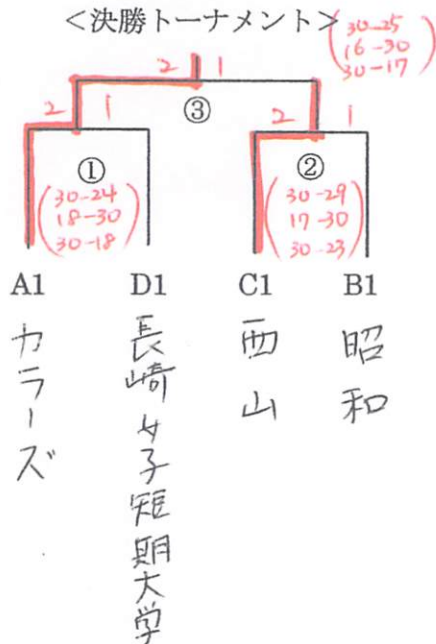 <決勝トーナメント>
30-25
16-30
30-17
2 1
③
2 1
2 1
①
30-24
18-30
30-18
②
30-29
17-30
30-23
A1 D1 C1 B1
カラーズ
長崎女子短期大学
西山
昭和